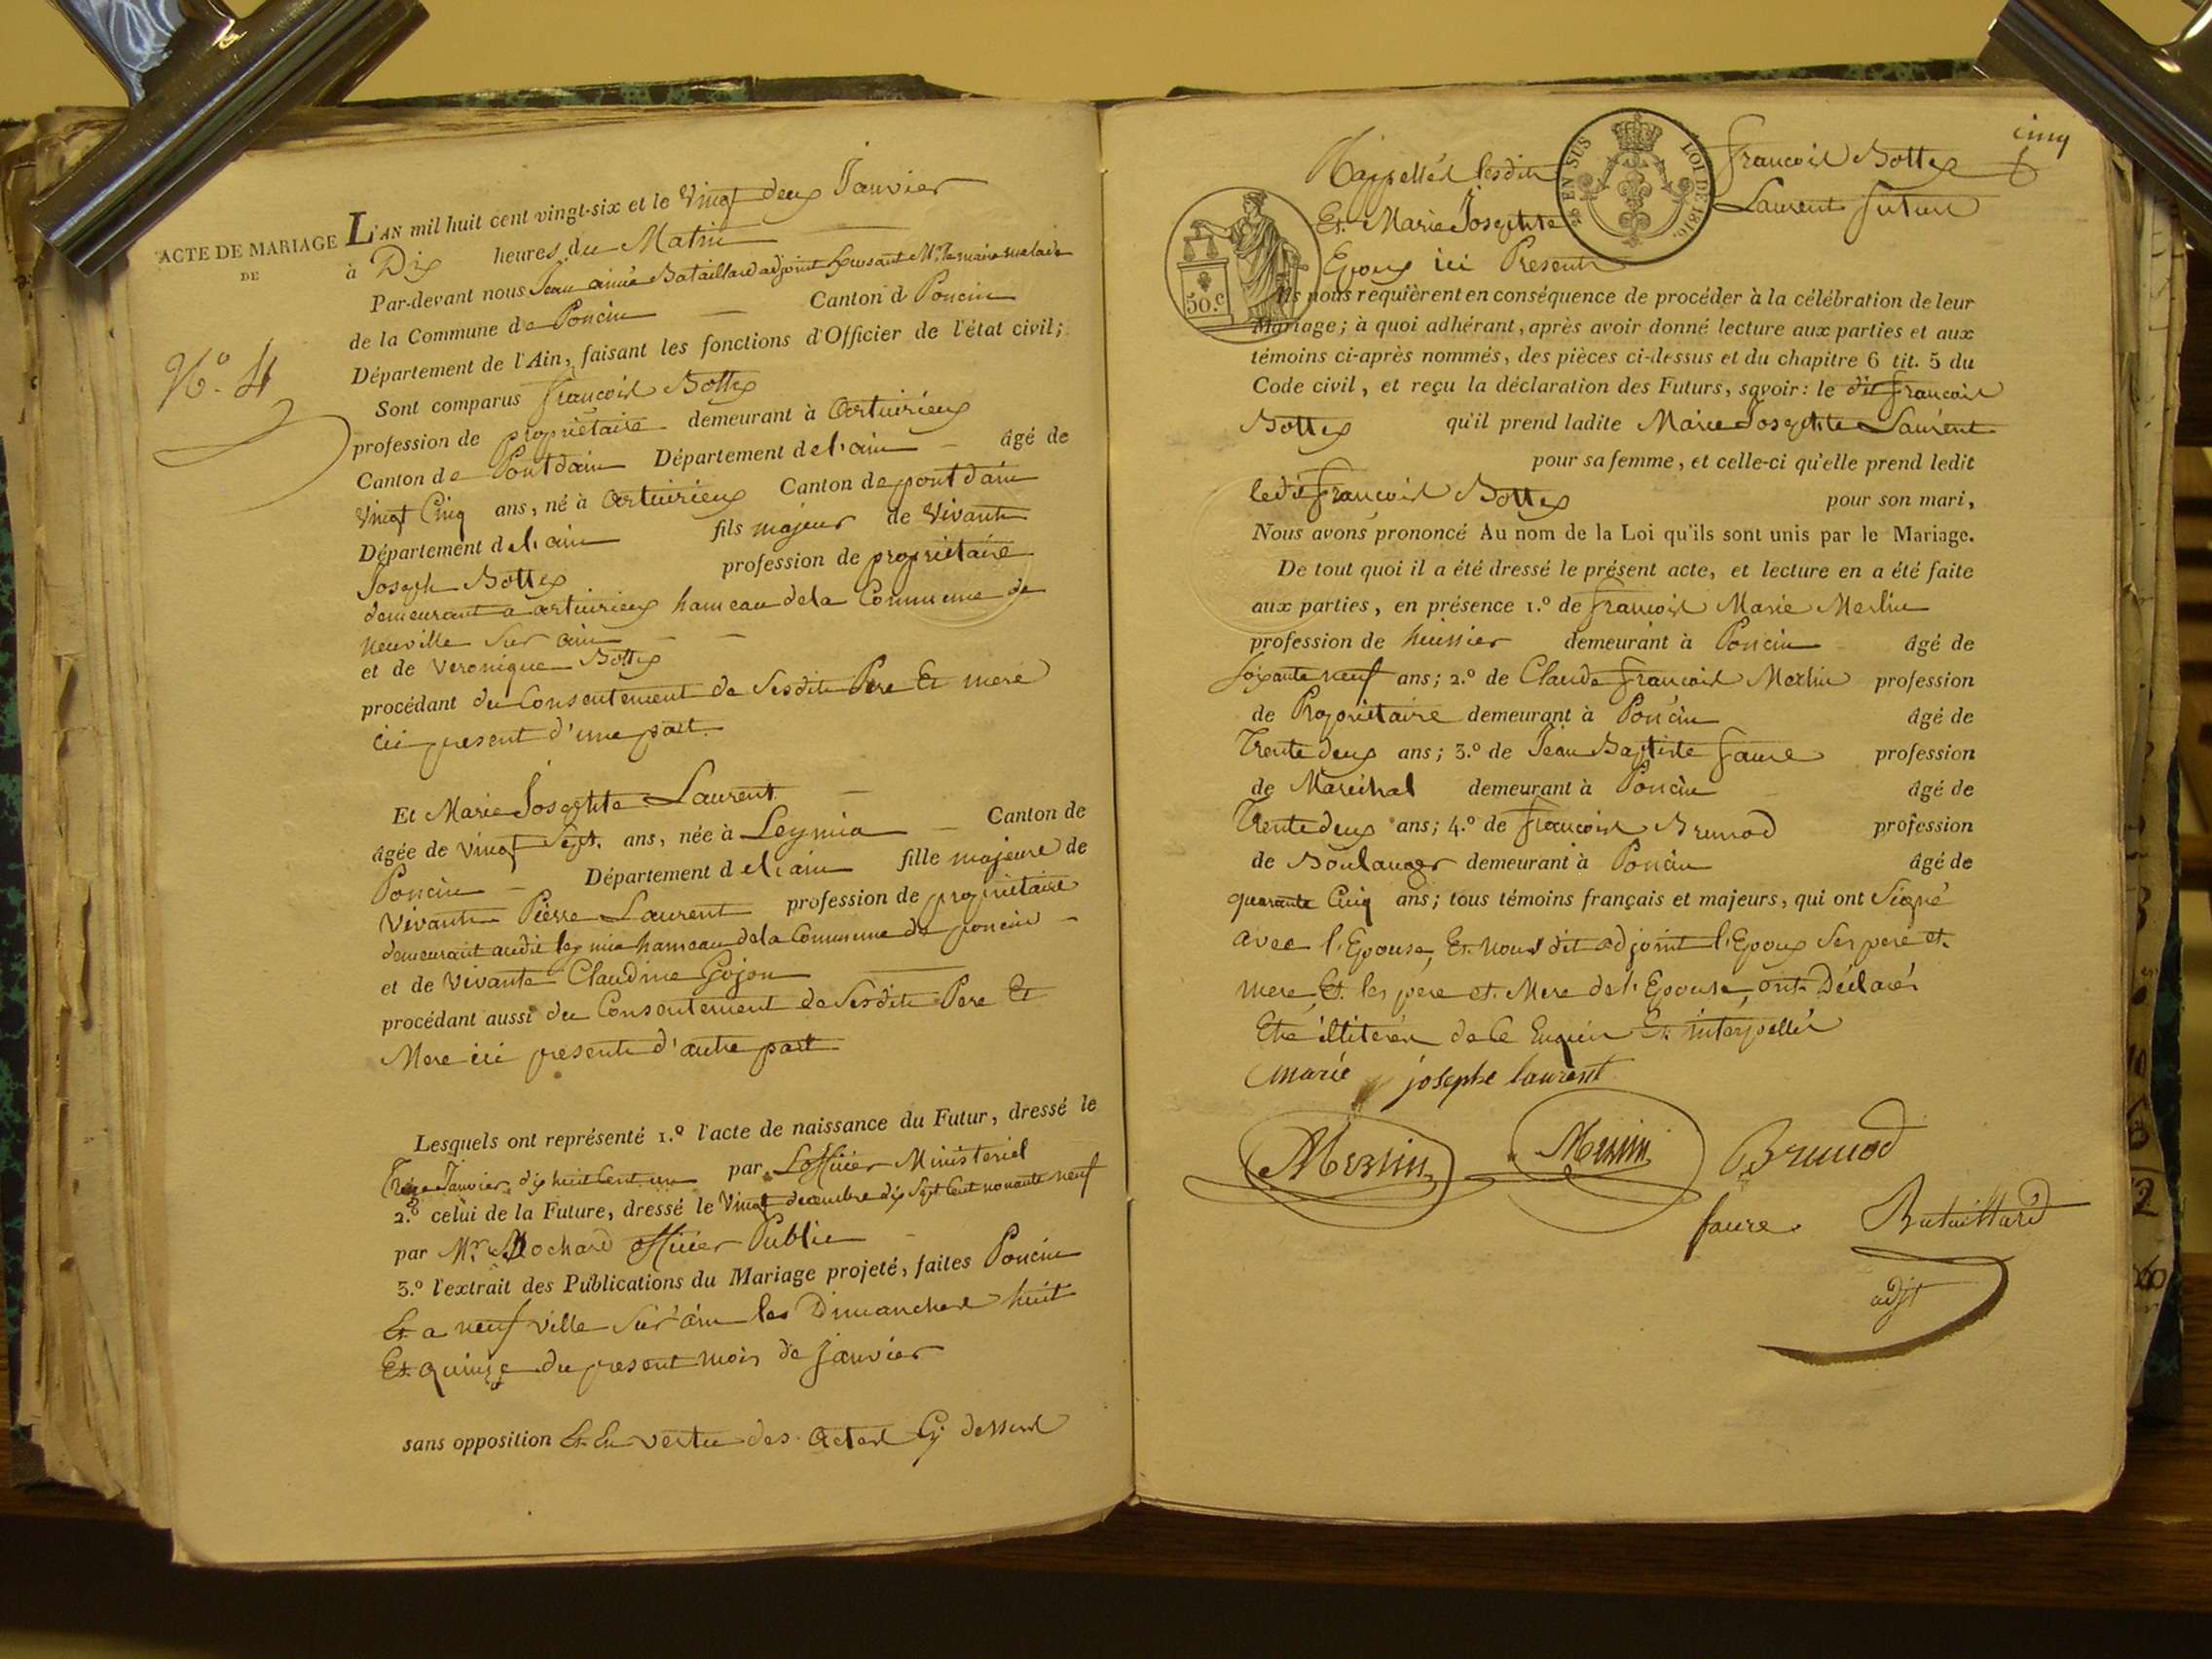 ACTE DE MARIAGE
DE
N.º 4
L'AN mil huit cent vingt-six et le Vingt deux Janvier
à Dix heures du Matin
Par-devant nous Jean aimé Bataillard adjoint Exerçant Mr. le maire malade
de la Commune de Poncin Canton d Poncin
Département de l'Ain, faisant les fonctions d'Officier de l'état civil;
Sont comparus françois Bottex
profession de propriétaire demeurant à Artuirieux
Canton de Pontdain Département de l'ain âgé de
Vingt Cinq ans, né à Artuirieux Canton de pont d'ain
Département de l'ain fils majeur de Vivants
Joseph Bottex profession de propriétaire
demeurant a artuirieux hameau de la Commune de
neuville Sur ain
et de Veronique Bottex
procédant du Consentement de Sesdits Pere Et mere
ici present d'une part.
Et Marie Josephte Laurent
âgée de vingt Sept. ans, née à Leymia Canton de
Poncin Département d el'ain fille majeure de
Vivants Pierre Laurent profession de propriétaire
demeurant audit leymia hameau de la Commune de poncin
et de Vivante Claudine Gojon
procédant aussi du Consentement de Sesdits Pere Et
Mere ici presents d'autre part
Lesquels ont représenté 1.º l'acte de naissance du Futur, dressé le
Treize Janvier dix huit Cent un par L'officier Ministeriel
2.º celui de la Future, dressé le Vingt decembre dix Sept Cent nonante neuf
par Mr. Mochard officier Public
3.º l'extrait des Publications du Mariage projeté, faites Poncin
Et a neuf ville Sur ain les Dimanches huit
Et quinze du present mois de janvier
sans opposition Et En vertu des Actes Cy dessus
cinq
Rappellés lesdits françois Bottex
Et Marie Josephte Laurent futurs
Epoux ici Presents
25 EN SUS LOI DE 1816.
50.c
Ils nous requièrent en conséquence de procéder à la célébration de leur
Mariage; à quoi adhérant, après avoir donné lecture aux parties et aux
témoins ci-après nommés, des pièces ci-dessus et du chapitre 6 tit. 5 du
Code civil, et reçu la déclaration des Futurs, savoir: le dit françois
Bottex qu'il prend ladite Marie Josephte Laurent
pour sa femme, et celle-ci qu'elle prend ledit
ledit françois Bottex pour son mari,
Nous avons prononcé Au nom de la Loi qu'ils sont unis par le Mariage.
De tout quoi il a été dressé le présent acte, et lecture en a été faite
aux parties, en présence 1.º de françois Marie Merlin
profession de huissier demeurant à Poncin âgé de
Soixante neuf ans; 2.º de Claude françois Merlin profession
de Propriétaire demeurant à Poncin âgé de
Trente deux ans; 3.º de Jean Baptiste faure profession
de Maréchal demeurant à Poncin âgé de
Trente deux ans; 4.º de françois Brunod profession
de Boulanger demeurant à Poncin âgé de
quarante Cinq ans; tous témoins français et majeurs, qui ont Signé
avec l'Epouse, Et Nous dit adjoint l'Epoux Ses pere et
mere, Et les pere et Mere de l'Epouse, ont Déclarés
Etre illiterés de Ce Enquis Et interpellés
marie josephe laurent
Merlin Merlin Brunod
faure Bataillard
adjt